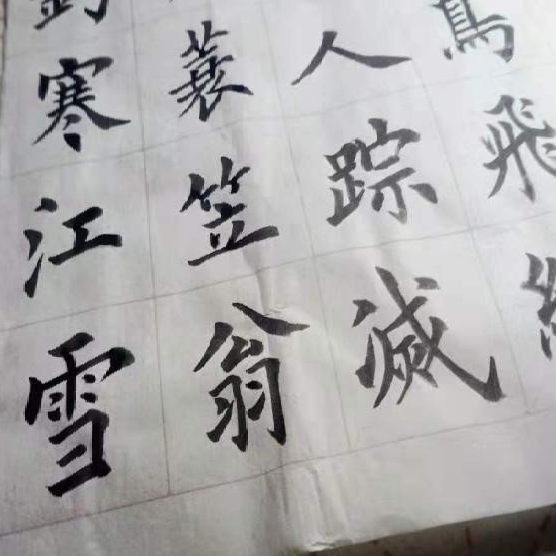 鳥飛絕
人踪滅
蓑笠翁
釣寒江雪